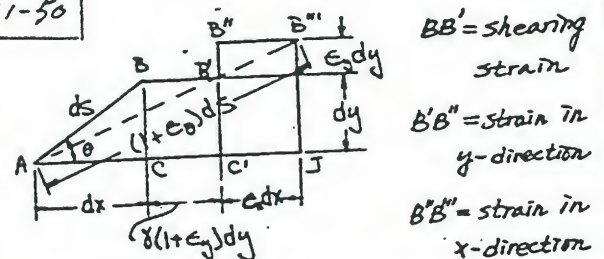 1-50
B"
B'''
B
B'
ϵydy
ds
(1+ϵθ)ds
dy
θ
A
C
C'
J
dx
ϵxdx
γ(1+ϵy)dy
BB' = shearing
strain
B'B" = strain in
y-direction
B"B''' = strain in
x-direction